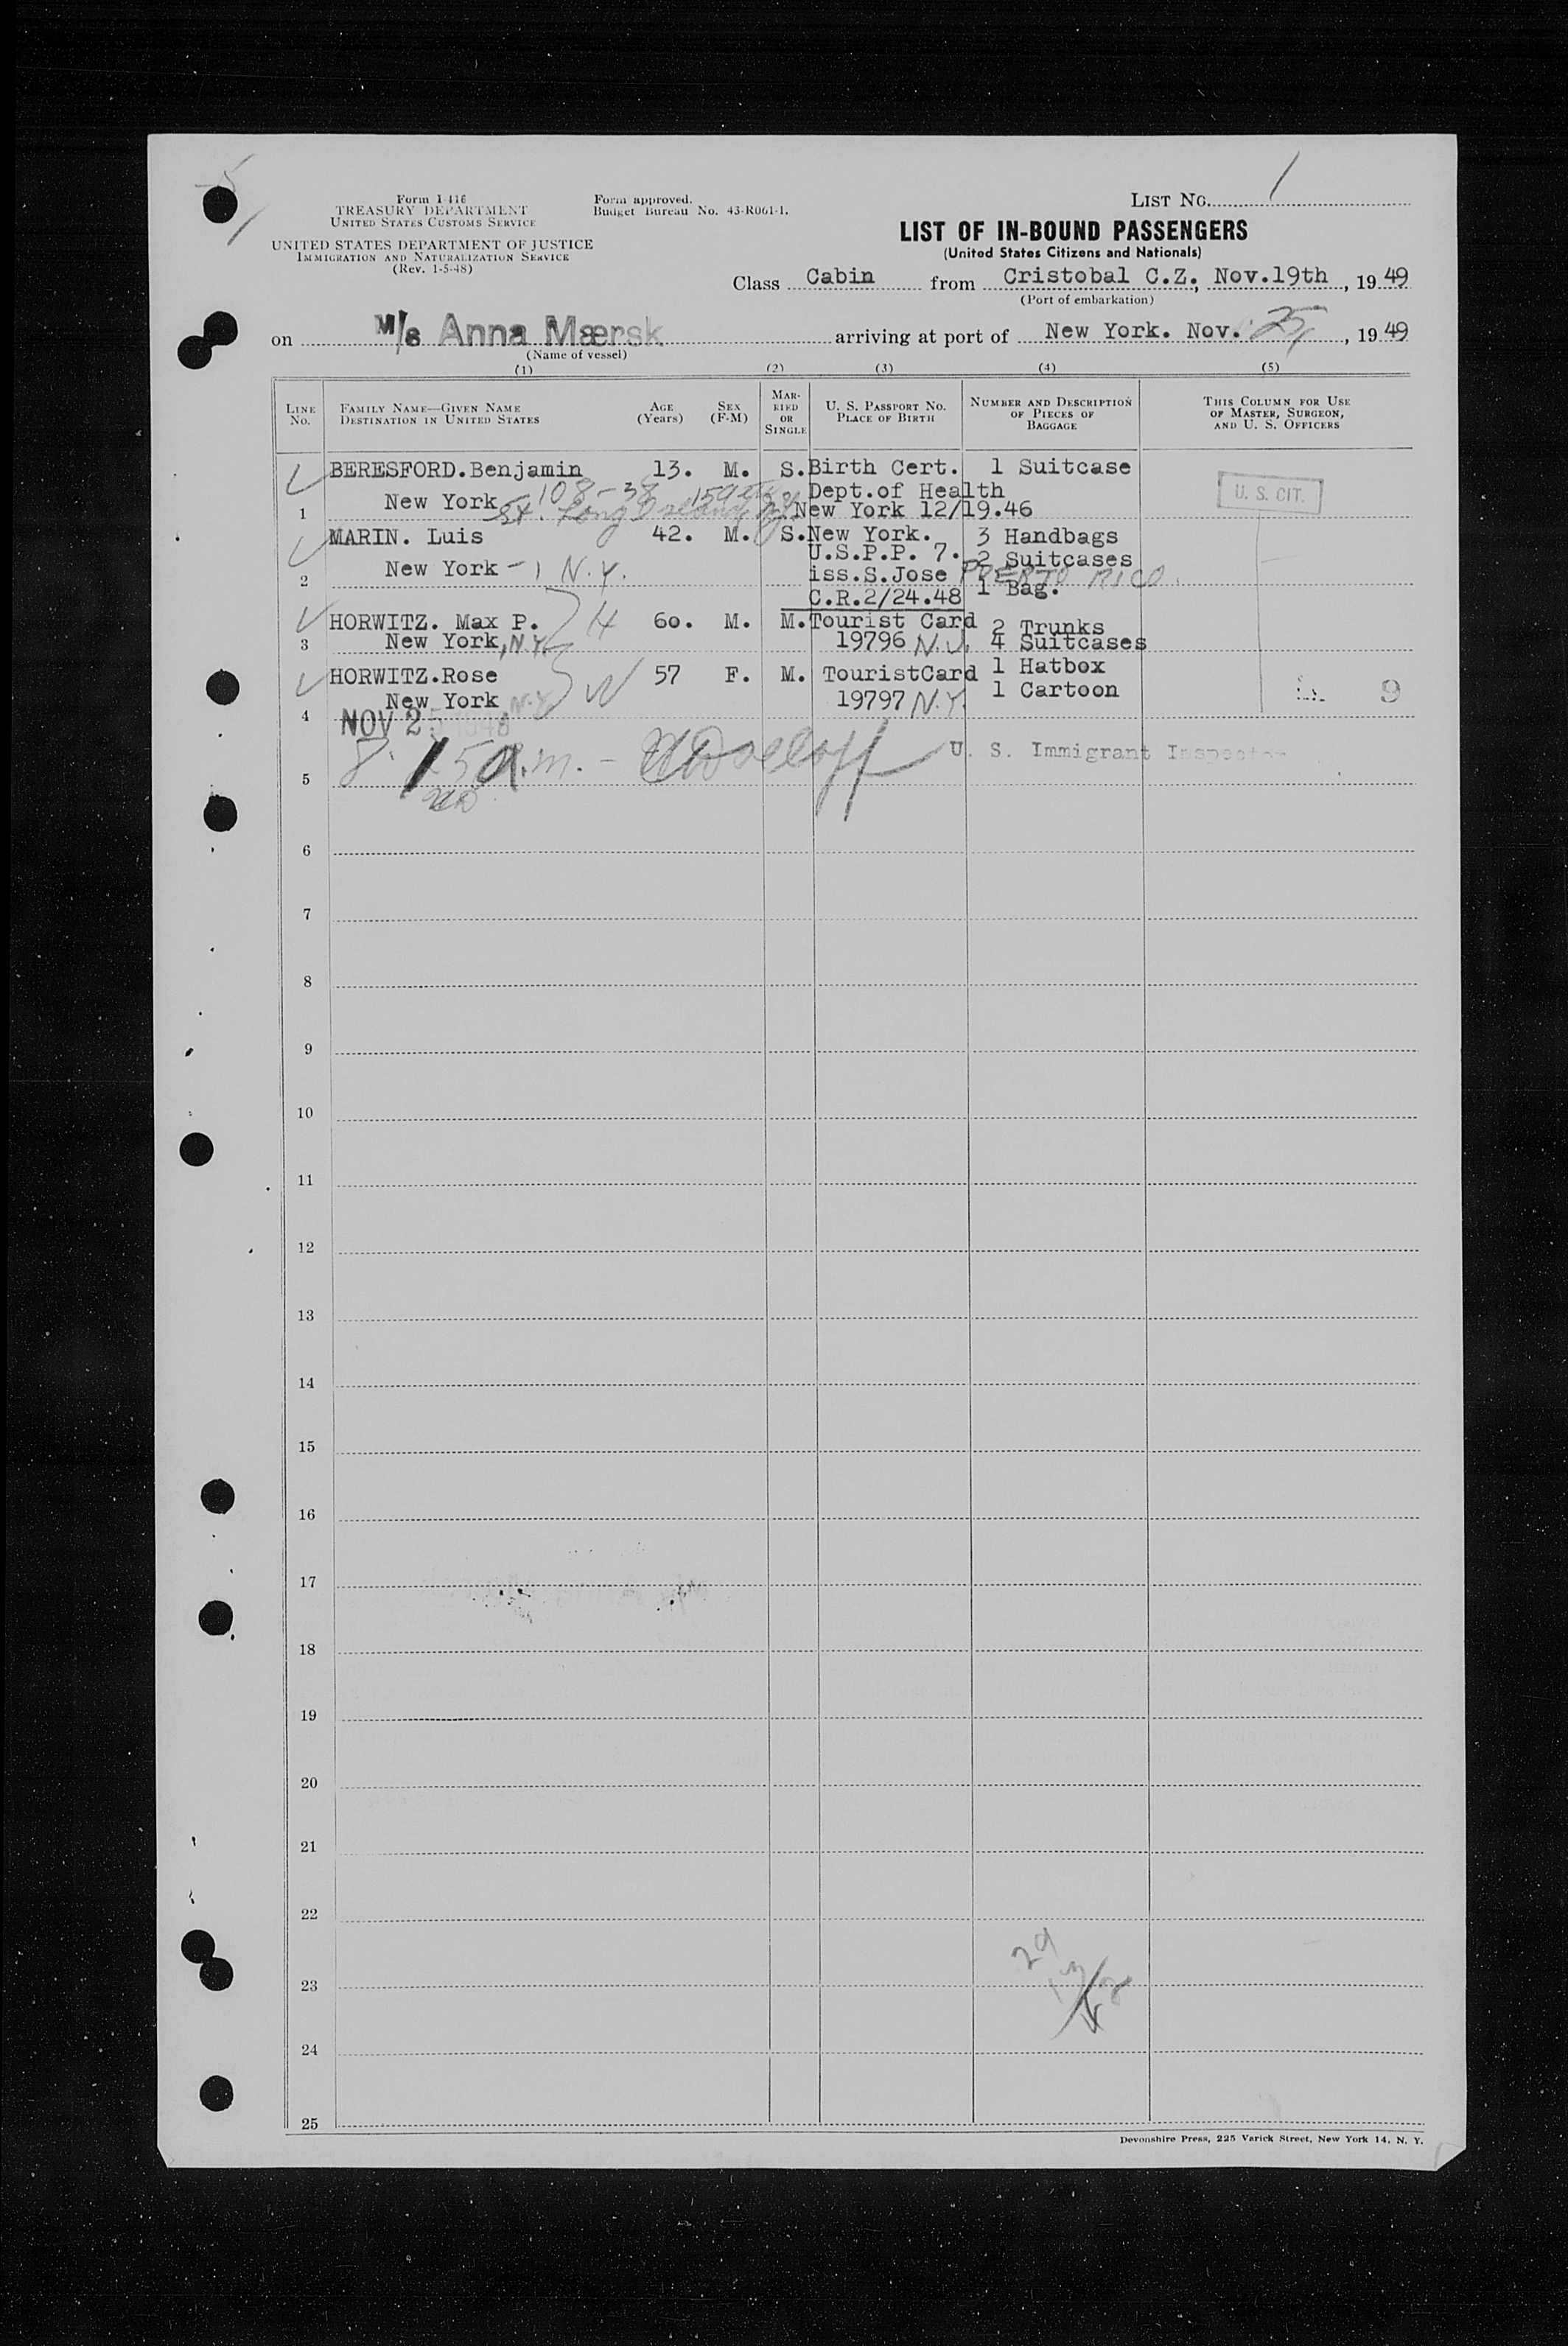 Form I-416
TREASURY DEPARTMENT
UNITED STATES CUSTOMS SERVICE
UNITED STATES DEPARTMENT OF JUSTICE
IMMIGRATION AND NATURALIZATION SERVICE
(Rev. 1-5-48)
Form approved.
Budget Bureau No. 43-R061-1.
LIST NO. 1
LIST OF IN-BOUND PASSENGERS
(United States Citizens and Nationals)
Class Cabin from Cristobal C.Z., Nov.19th, 1949
(Port of embarkation)
on M/s Anna Mærsk arriving at port of New York. Nov. 25, 1949
(Name of vessel)
(1) (2) (3) (4) (5)
LINE NO.
FAMILY NAME—GIVEN NAME
DESTINATION IN UNITED STATES
AGE (Years)
SEX (F-M)
MARRIED OR SINGLE
U. S. PASSPORT NO.
PLACE OF BIRTH
NUMBER AND DESCRIPTION OF PIECES OF BAGGAGE
THIS COLUMN FOR USE OF MASTER, SURGEON, AND U. S. OFFICERS
BERESFORD.Benjamin 13. M. S. Birth Cert. 1 Suitcase
New York 108-38 159th Dept.of Health U. S. CIT.
1 St. Long Island N.Y. New York 12/19.46
MARIN. Luis 42. M. S. New York. 3 Handbags
U.S.P.P. 7. 2 Suitcases
2 New York - 1 N.Y. iss.S.Jose PUERTO RICO.
C.R.2/24.48 1 Bag.
HORWITZ. Max P. 60. M. M. Tourist Card 2 Trunks
3 New York, N.Y. 19796 N.Y. 4 Suitcases
HORWITZ.Rose 57 F. M. TouristCard 1 Hatbox
New York N.Y. 19797 N.Y. 1 Cartoon 9
4 NOV 25
8.15 a.m. - U. S. Immigrant Inspector
5
6
7
8
9
10
11
12
13
14
15
16
17
18
19
20
21
22
23
24
25
Devonshire Press, 225 Varick Street, New York 14, N. Y.